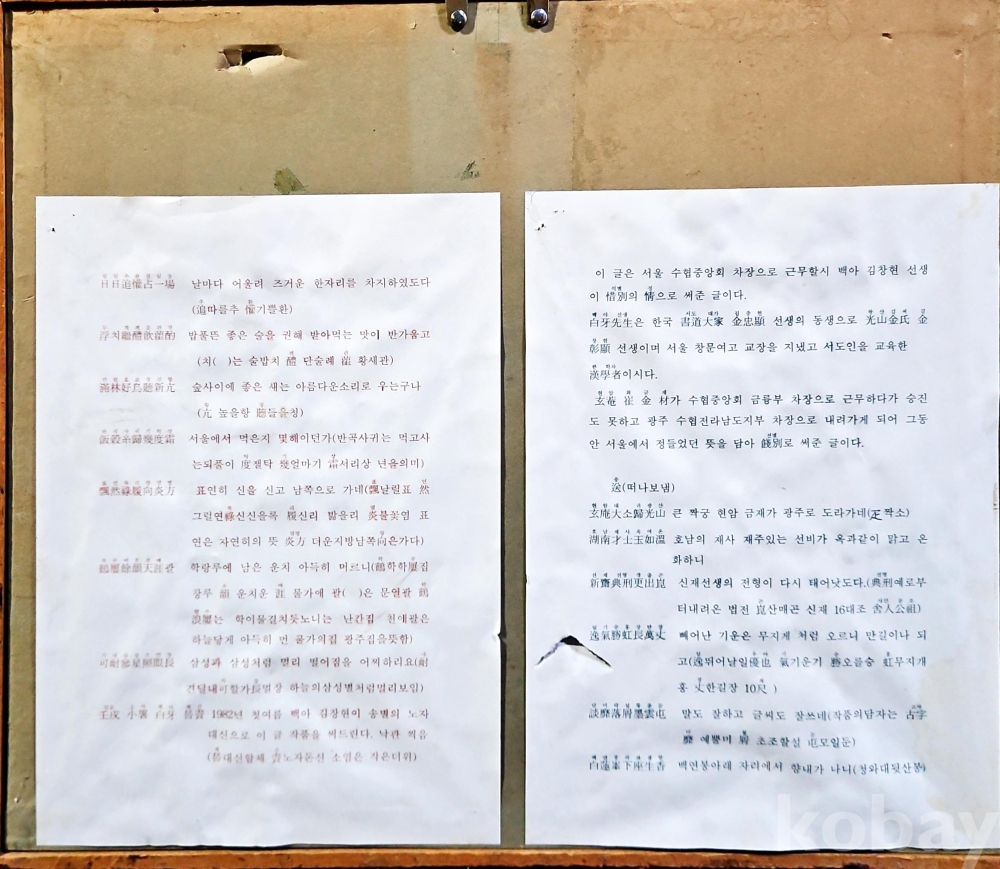 이 글은 서울 수협중앙회 차장으로 근무할시 백아 김창현 선생
이 惜別의 情으로 써준 글이다.
白牙先生은 한국 書道大家 金忠顯 선생의 동생으로 光山金氏 金
彰顯 선생이며 서울 창문여고 교장을 지냈고 서도인을 교육한
漢學者이시다.
玄菴 崔 金 材가 수협중앙회 금융부 차장으로 근무하다가 승진
도 못하고 광주 수협전라남도지부 차장으로 내려가게 되어 그동
안 서울에서 정들었던 뜻을 담아 餞別로 써준 글이다.
送(떠나보냄)
玄庵大소歸光山 큰 짝궁 현암 금재가 광주로 도라가네(疋 짝소)
湖南才士玉如溫 호남의 재사 재주있는 선비가 옥과같이 맑고 온
화하니
新齋典刑更出崑 신재선생의 전형이 다시 태어낫도다.(典刑예로부
터내려온 법전 崑산매곤 신재 16대조 舍人公祖)
逸氣勝虹長萬丈 빼어난 기운은 무지게 처럼 오르니 만길이나 되
고(逸뛰어날일優也 氣기운기 勝오를숭 虹무지개
홍 丈한길장 10尺 )
談靡落屑墨雲屯 말도 잘하고 글씨도 잘쓰네(작품의담자는 古字
靡 예쁠미 屑 초조할설 屯모일둔)
白蓮峯下座生香 백연봉아래 자리에서 향내가 나니(청와대뒷산봉)
日日追懽占一場 날마다 어울려 즈거운 한자리를 차지하였도다
(追따를추 懽기쁠환)
浮치繼醴飮 밥풀뜬 좋은 술을 권해 받아먹는 맛이 반가웁고
(치( )는 술밥치 醴 단술례 황세관)
滿林好鳥聽新亢 숲사이에 좋은 새는 아름다운소리로 우는구나
(亢 높을항 聽들을청)
飯穀糸歸幾度霜 서울에서 먹은지 몇해이던가(반곡사귀는 먹고사
는되풀이 度잴탁 幾얼마기 霜서리상 년을의미)
飄然祿履向炎方 표연히 신을 신고 남쪽으로 가네(飄날릴표 然
그럴연祿신신을록 履신리 밟을리 炎불꽃염 표
연은 자연히의 뜻 炎方 더운지방남쪽向은가다)
鶴廔餘韻天涯광 학랑루에 남은 운치 아득히 머르니(鶴학학廔집
장루 韻 운치운 涯 물가애 광( )은 문열광 鶴
廔는 학이물걸치듯노니는 난간집 천애광은
하늘닿게 아득히 먼 물가의집 광주집을뜻함)
可耐參星照眼長 삼성과 삼성처럼 멀리 벌어짐을 어찌하리요(耐
견딜내可할가長멀장 하늘의삼성별처럼멀리보임)
壬戌 小署 白牙 1982년 첫여름 백아 김창현이 송별의 노자
대신으로 이 글 작품을 써드린다. 낙관 찍음
노자돈신 소엄은 작은더위)
kobay